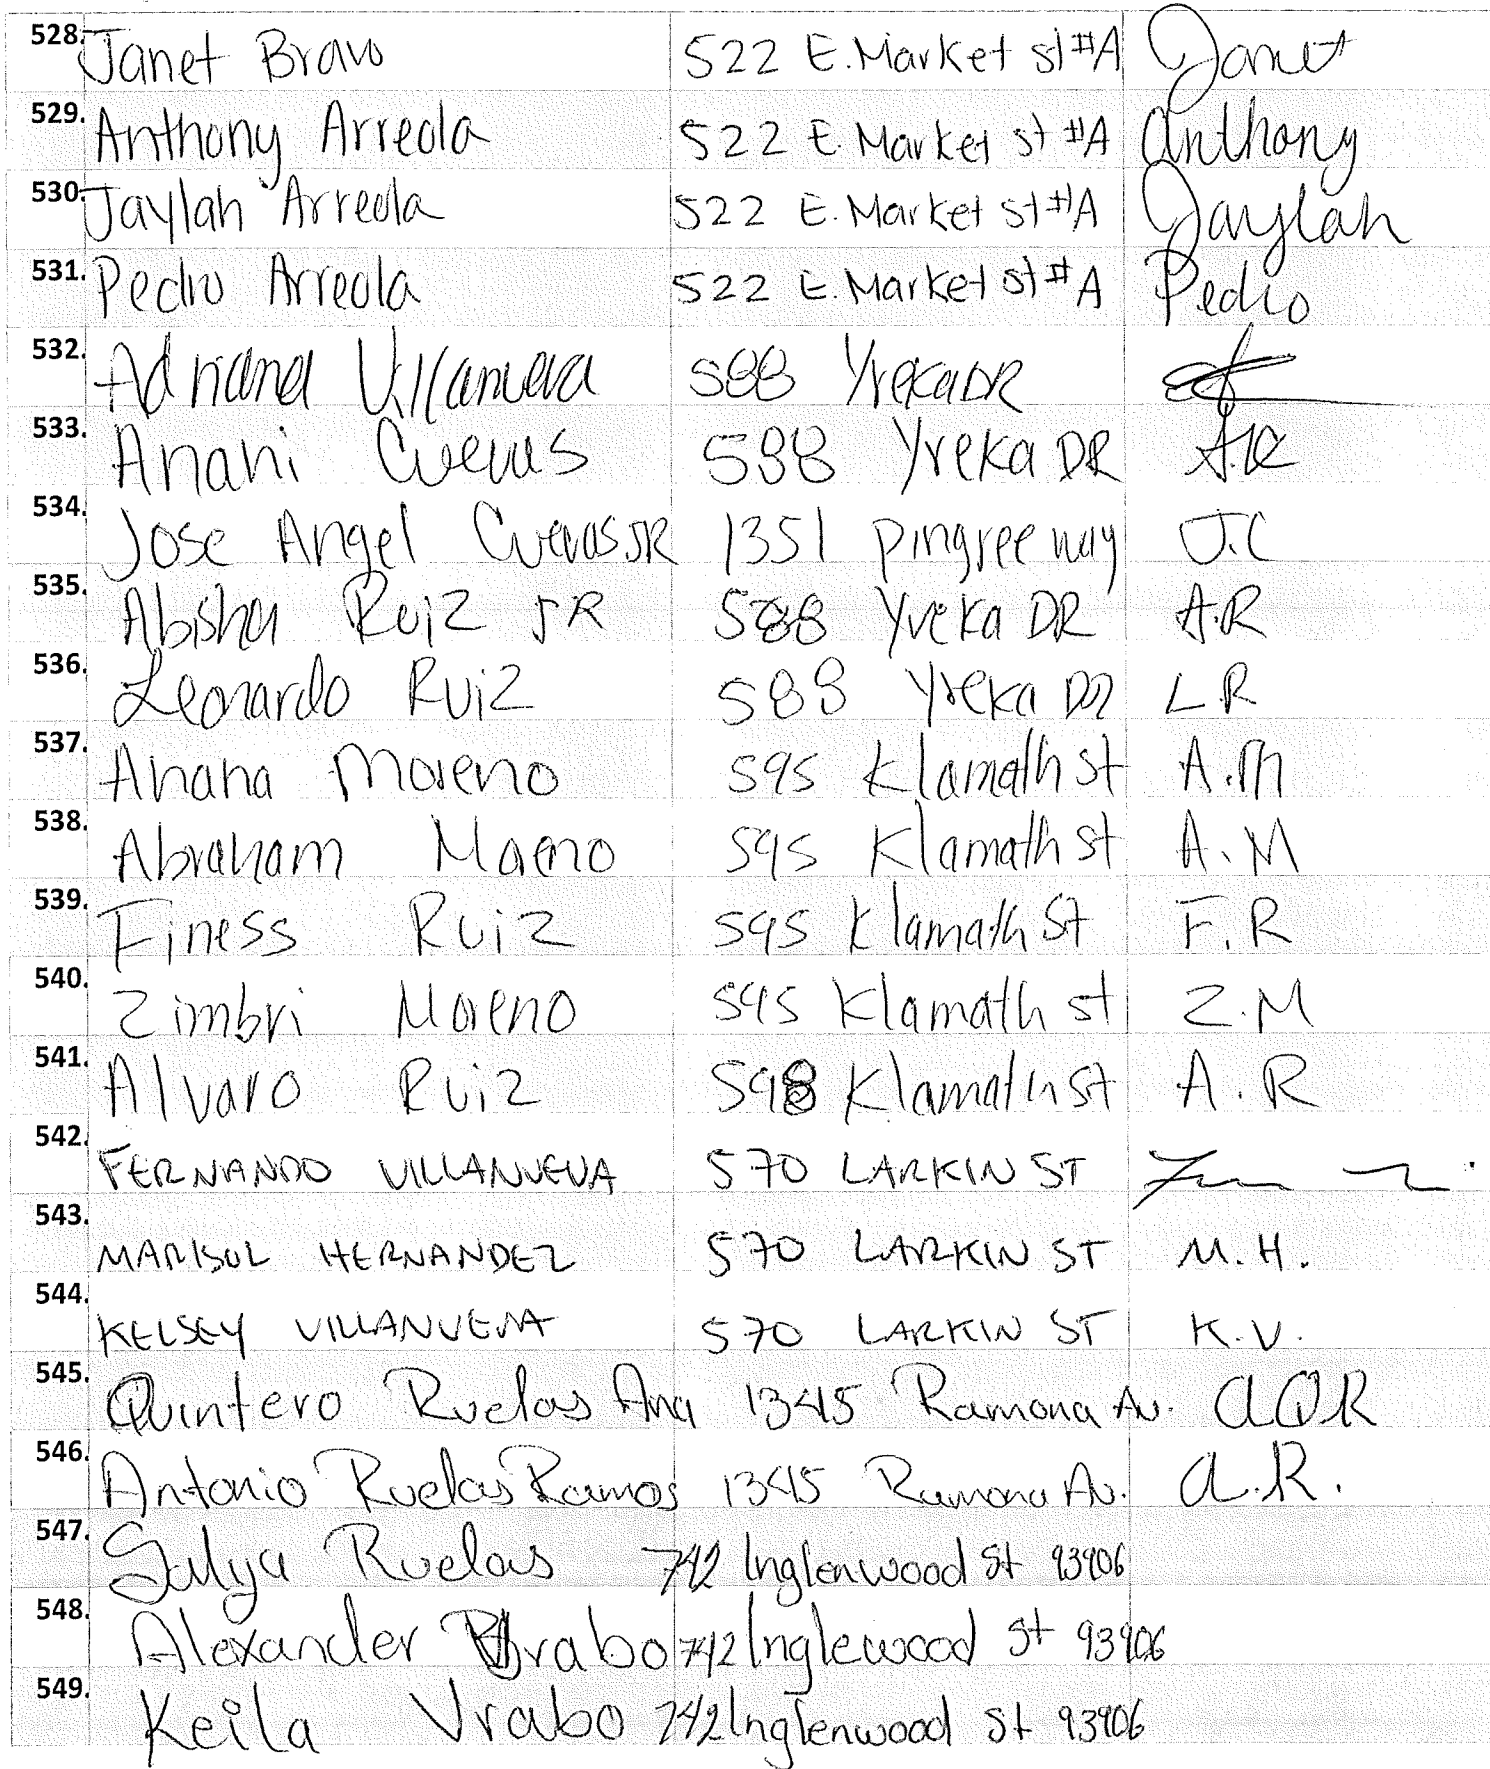 528. Janet Bravo 522 E. Market st #A Janet
529. Anthony Arreola 522 E. Market st #A Anthony
530. Jaylah Arreola 522 E. Market st #A Jaylah
531. Pedro Arreola 522 E. Market st #A Pedro
532. Adriana Villanueva 588 Yreka DR
533. Anahi Cuevas 588 Yreka DR
534. Jose Angel Cuevas JR 1351 Pingree way J.C
535. Abisha Ruiz JR 588 Yreka DR A.R
536. Leonardo Ruiz 588 Yreka DR L.R
537. Moreno 595 Klamath st A.M
538. Abraham Moreno 595 Klamath st A.M
539. Finess Ruiz 595 Klamath St F.R
540. Zimbri Moreno 595 Klamath st Z.M
541. Alvaro Ruiz 598 Klamath St A.R
542. FERNANDO VILLANUEVA 570 LARKIN ST
543. MARISOL HERNANDEZ 570 LARKIN ST M.H.
544. KELSEY VILLANUEVA 570 LARKIN ST K.V.
545. Quintero Ruelas Ana 1345 Ramona Av. AQR
546. Antonio Ruelas Ramos 1345 Ramona Av. A.R.
547. Ruelas 742 Inglenwood St 93906
548. Alexander 742 Inglewood St 93906
549. Keila Vrabo 742 Inglenwood St 93906